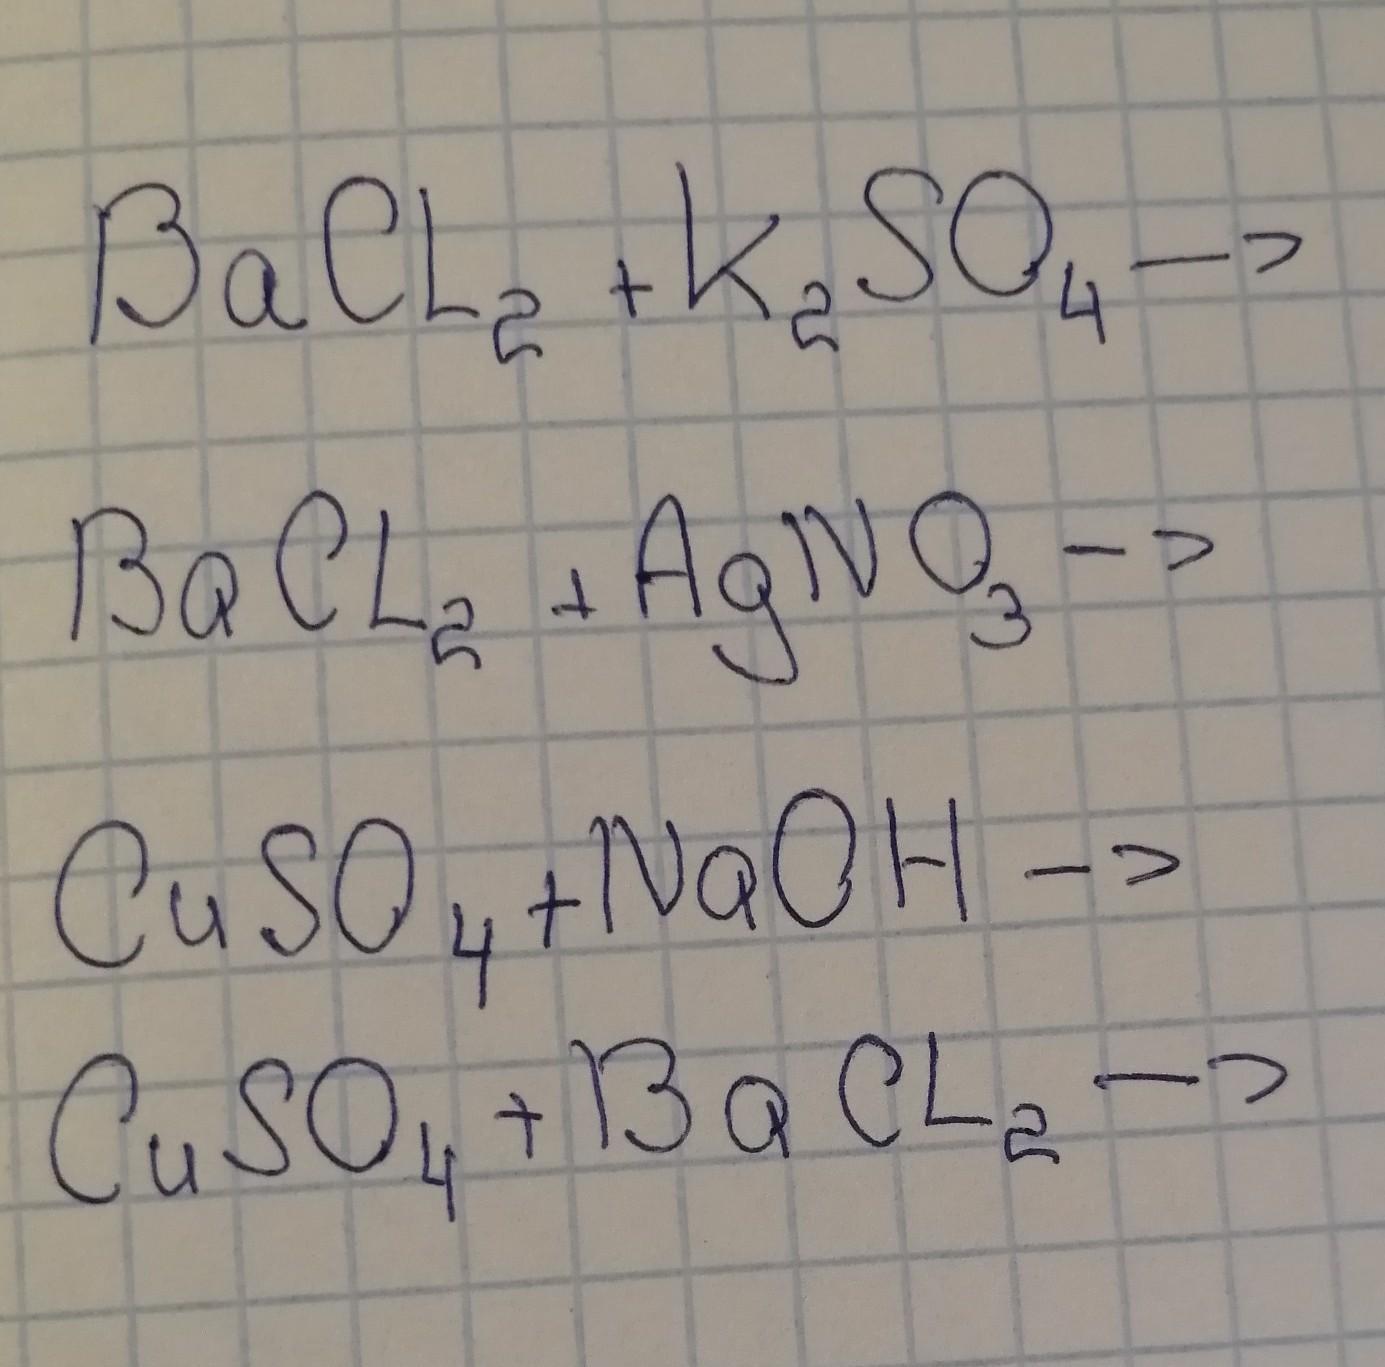 BaCL₂ + K₂SO₄ —>
BaCL₂ + AgNO₃ —>
CuSO₄ + NaOH —>
CuSO₄ + BaCL₂ —>